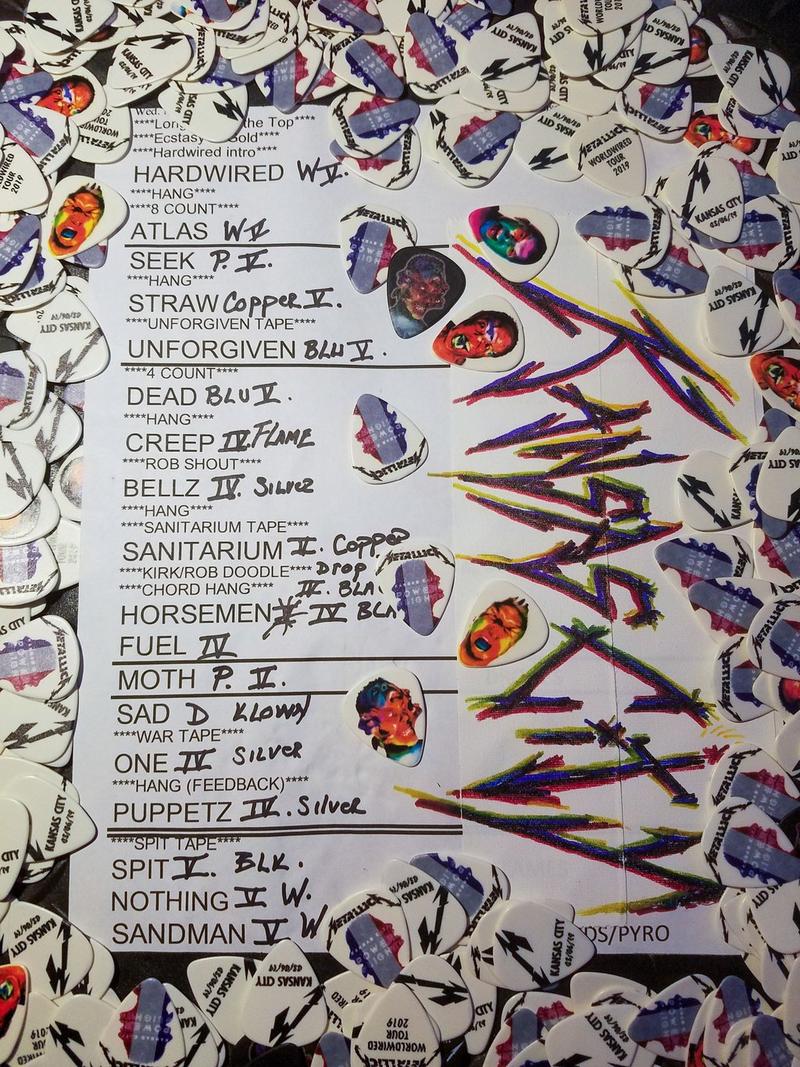 Wed.
****Long the Top****
****Ecstasy Gold****
****Hardwired intro****
HARDWIRED W V.
****HANG****
****8 COUNT****
ATLAS W V
SEEK P. V.
****HANG****
STRAW Copper V.
****UNFORGIVEN TAPE****
UNFORGIVEN BLU V.
****4 COUNT****
DEAD BLU V.
****HANG****
CREEP IV FLAME
****ROB SHOUT****
BELLZ IV. SILVER
****HANG****
****SANITARIUM TAPE****
SANITARIUM V. Copper
****KIRK/ROB DOODLE**** Drop
****CHORD HANG****
HORSEMEN IV
FUEL IV
MOTH P. V.
SAD D KLOWN
****WAR TAPE****
ONE IV SILVER
****HANG (FEEDBACK)****
PUPPETZ IV. Silver
****SPIT TAPE****
SPIT V. BLK.
NOTHING V W.
SANDMAN V W
DS/PYRO
KANSAS
METALLICA
WORLDWIRED
TOUR
2019
KANSAS CITY
03/06/19